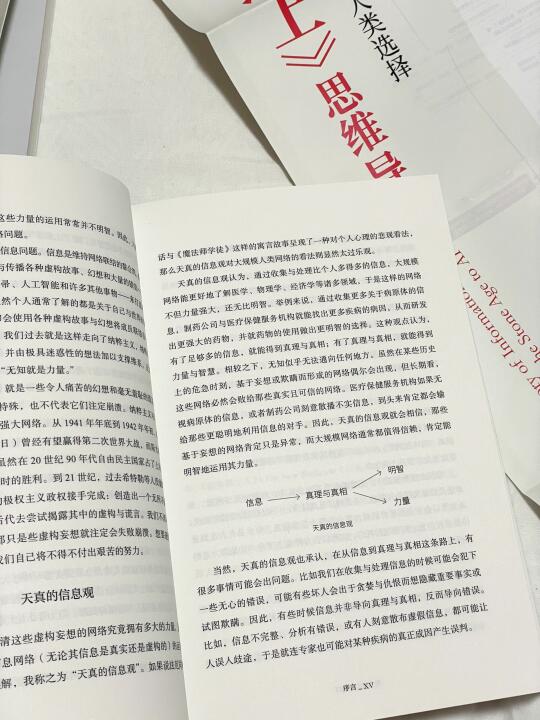 这些力量的运用常常并不明智。因此，
络问题。
信息问题。信息是维持网络联结的
与传播各种虚构故事、幻想和大量的
带、人工智能和许多其他事物——
然个人通常了解的都是关于自己与世
会使用各种虚构故事与幻想将成员
我们过去就是这样走向了纳粹主义
并由极具迷惑性的想法加以支撑
“无知就是力量。”
就是一些令人痛苦的幻想和毫无
特殊，也不代表它们注定崩溃。纳粹主义
强大网络。从 1941 年年底到 1942 年年
日）曾经有望赢得第二次世界大战，
虽然在 20 世纪 90 年代自由民主国家占了上
时的胜利。到 21 世纪，过去希特勒等人
极权主义政权接手完成：创造出一个
后代去尝试揭露其中的虚构与谎言。我们不
那只是些虚构妄想就注定会失败崩溃。
我们自己将不得不付出艰苦的努力。
天真的信息观
清这些虚构妄想的网络究竟拥有多大的力量
信息网络（无论其信息是真实还是虚构的）
解，我称之为“天真的信息观”。如果说
话与《魔法师学徒》这样的寓言故事呈现了一种对个人心理的悲观看法，
那么天真的信息观对大规模人类网络的看法则显然太过乐观。
天真的信息观认为，通过收集与处理比个人多得多的信息，大规模
网络能更好地了解医学、物理学、经济学等诸多领域，于是这样的网络
不但力量强大，还无比明智。举例来说，通过收集更多关于病原体的信
息，制药公司与医疗保健服务机构就能找出更多疾病的病因，从而研发
出更强大的药物，并就药物的使用做出更明智的选择。这种观点认为，
有了足够多的信息，就能得到真理与真相；有了真理与真相，就能得到
力量与智慧。相较之下，无知似乎无法通向任何地方。虽然在某些历史
上的危急时刻，基于妄想或欺瞒而形成的网络偶尔会出现，但长期看，
这些网络必然会败给那些真实且可信的网络。医疗保健服务机构如果无
视病原体的信息，或者制药公司刻意散播不实信息，到头来肯定都会输
给那些更聪明地利用信息的对手。因此，天真的信息观就会相信，那些
基于妄想的网络肯定只是异常，而大规模网络通常都值得信赖，肯定能
明智地运用其力量。
信息
真理与真相
明智
力量
天真的信息观
当然，天真的信息观也承认，在从信息到真理与真相这条路上，有
很多事情可能会出问题。比如我们在收集与处理信息的时候可能会犯下
一些无心的错误，可能有些坏人会出于贪婪与仇恨而想隐藏重要事实或
试图欺瞒。因此，有些时候信息并非导向真理与真相，反而导向错误。
比如，信息不完整、分析有错误，或有人刻意散布虚假信息，都可能让
人误入歧途，于是就连专家也可能对某种疾病的真正成因产生误判。
序言_XV
上》思维导
人类选择
ory of Informatio
the Stone Age to AI